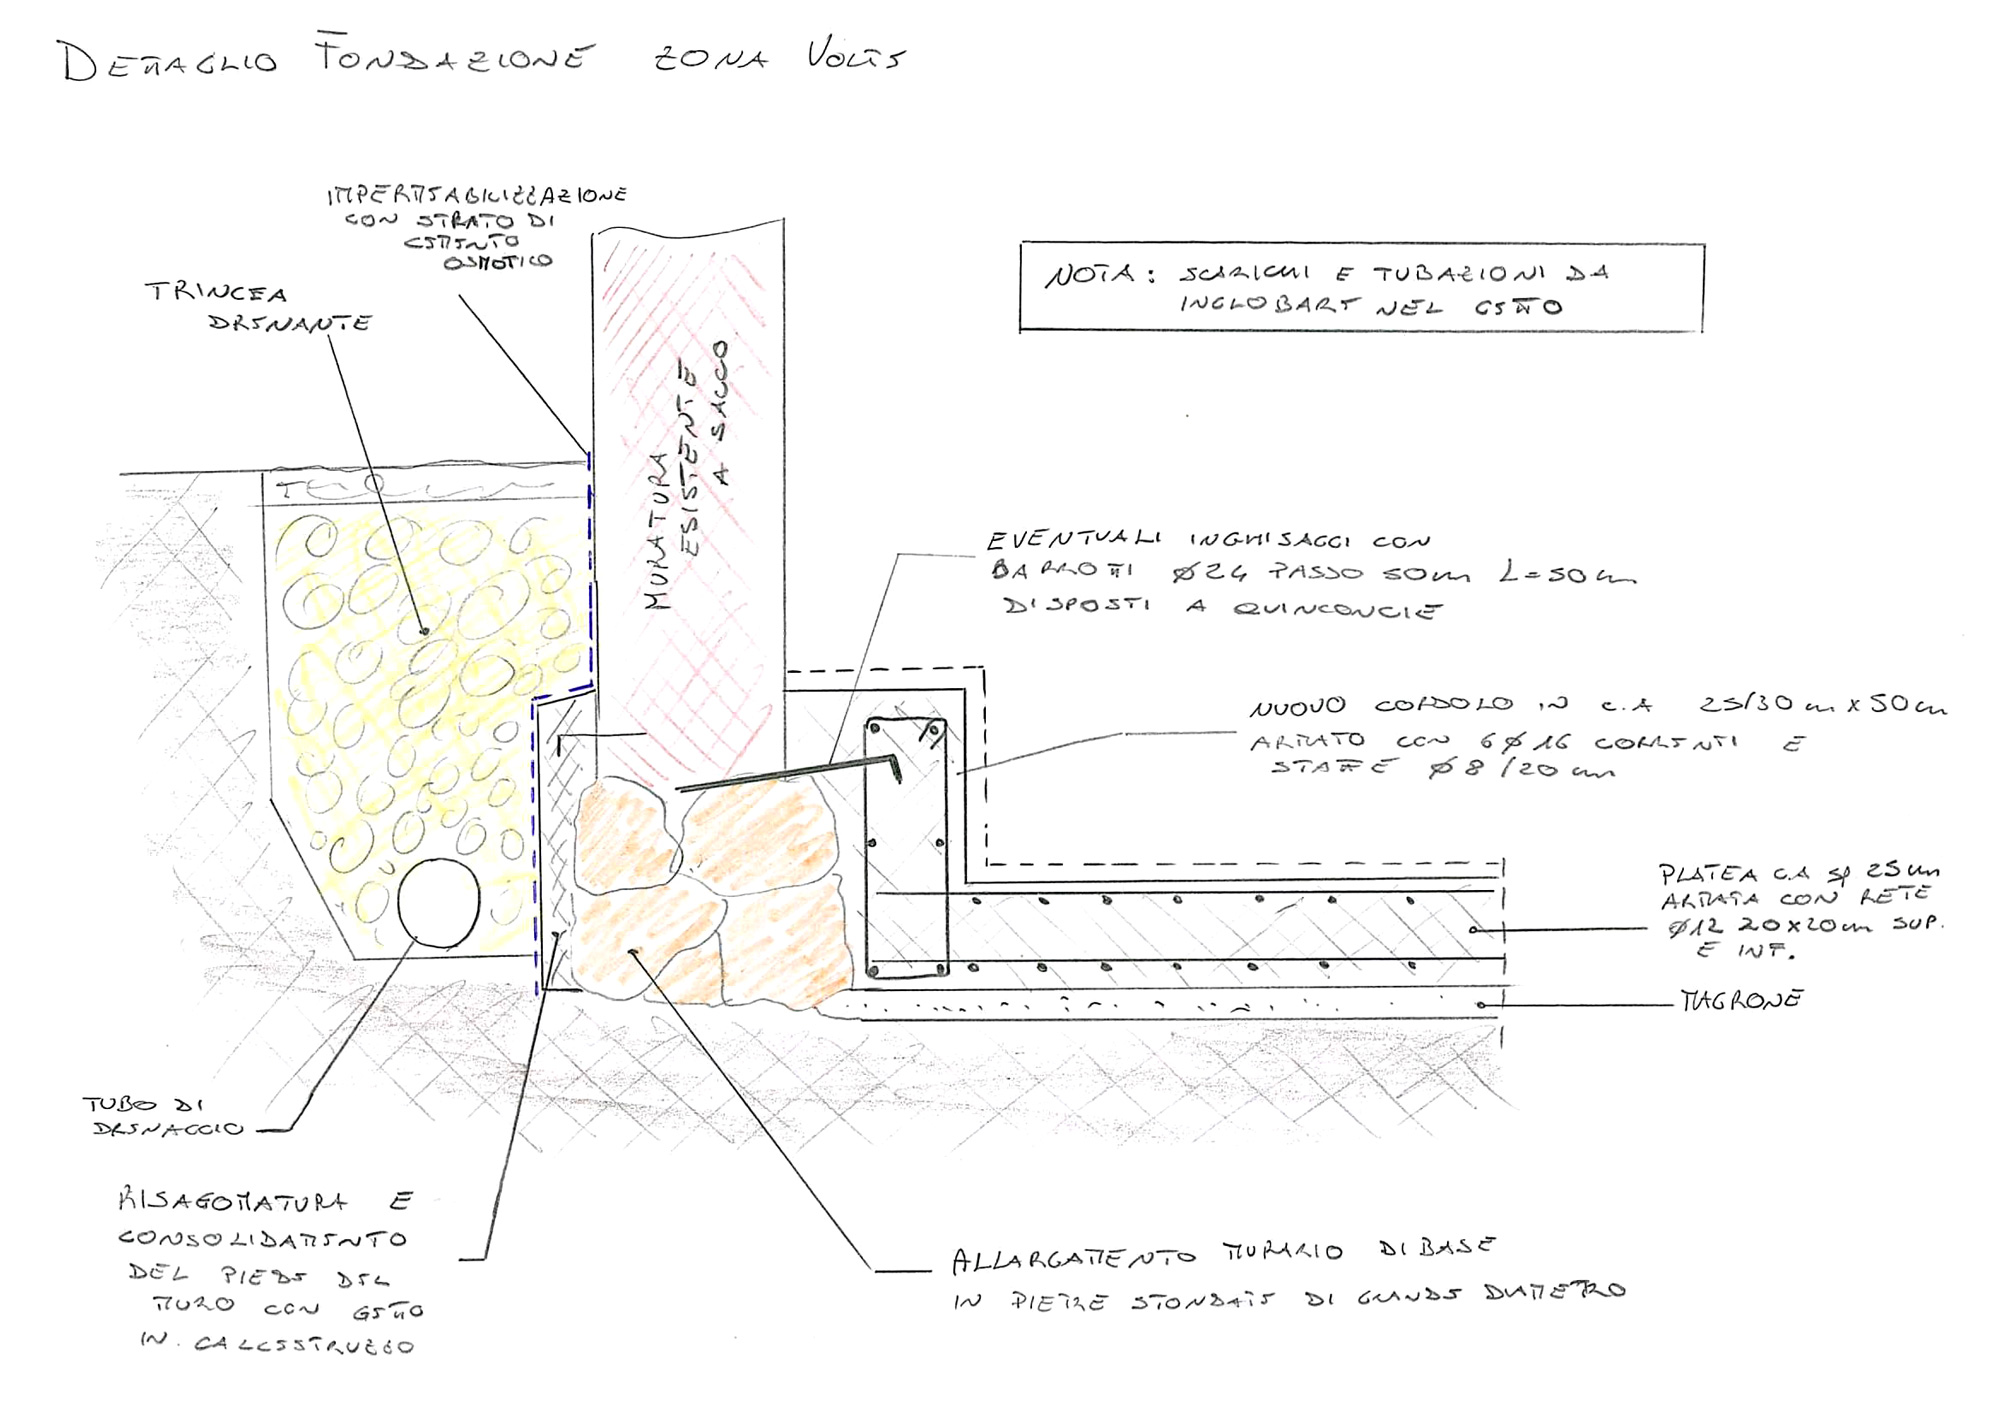 DETTAGLIO FONDAZIONE ZONA VOLTE
IMPERMEABILIZZAZIONE
CON STRATO DI
CEMENTO
OSMOTICO
TRINCEA
DRENANTE
NOTA: SCARICHI E TUBAZIONI DA
INGLOBARE NEL GETTO
MURATURA
ESISTENTE
A SACCO
EVENTUALI INGHISAGGI CON
BARROTTI Ø24 PASSO 50cm L=50cm
DISPOSTI A QUINCONCIE
NUOVO CORDOLO IN C.A 25/30 cm x 50cm
ARMATO CON 6Ø16 CORRENTI E
STAFFE Ø8/20cm
PLATEA C.A sp 25cm
ARMATA CON RETE
Ø12 20x20cm SUP.
E INF.
MAGRONE
TUBO DI
DRENAGGIO
RISAGOMATURA E
CONSOLIDAMENTO
DEL PIEDE DEL
MURO CON GETTO
IN CALCESTRUZZO
ALLARGAMENTO MURARIO DI BASE
IN PIETRE STONDATE DI GRANDE DIAMETRO